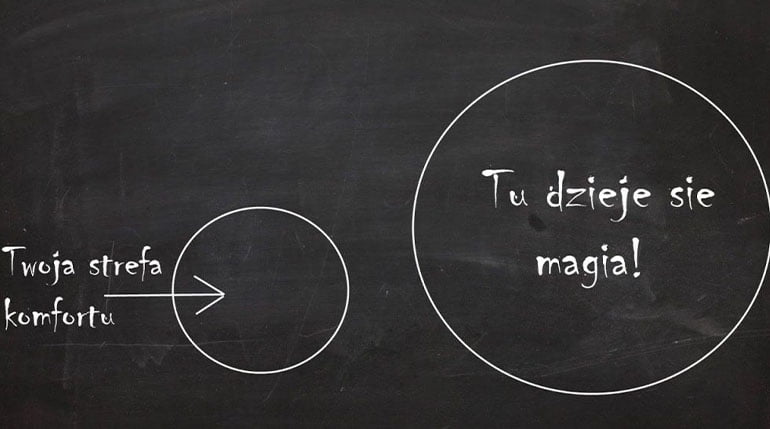 Twoja strefa
komfortu
Tu dzieje sie
magia!